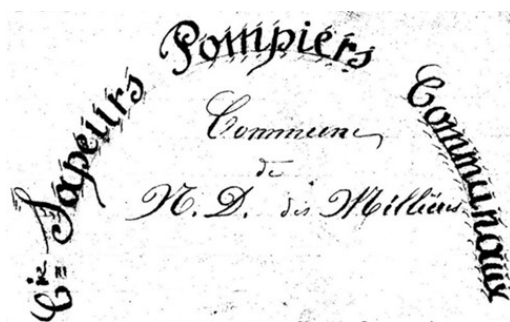 Cie Sapeurs Pompiers Communaux
Commune
de
N. D. des Millières